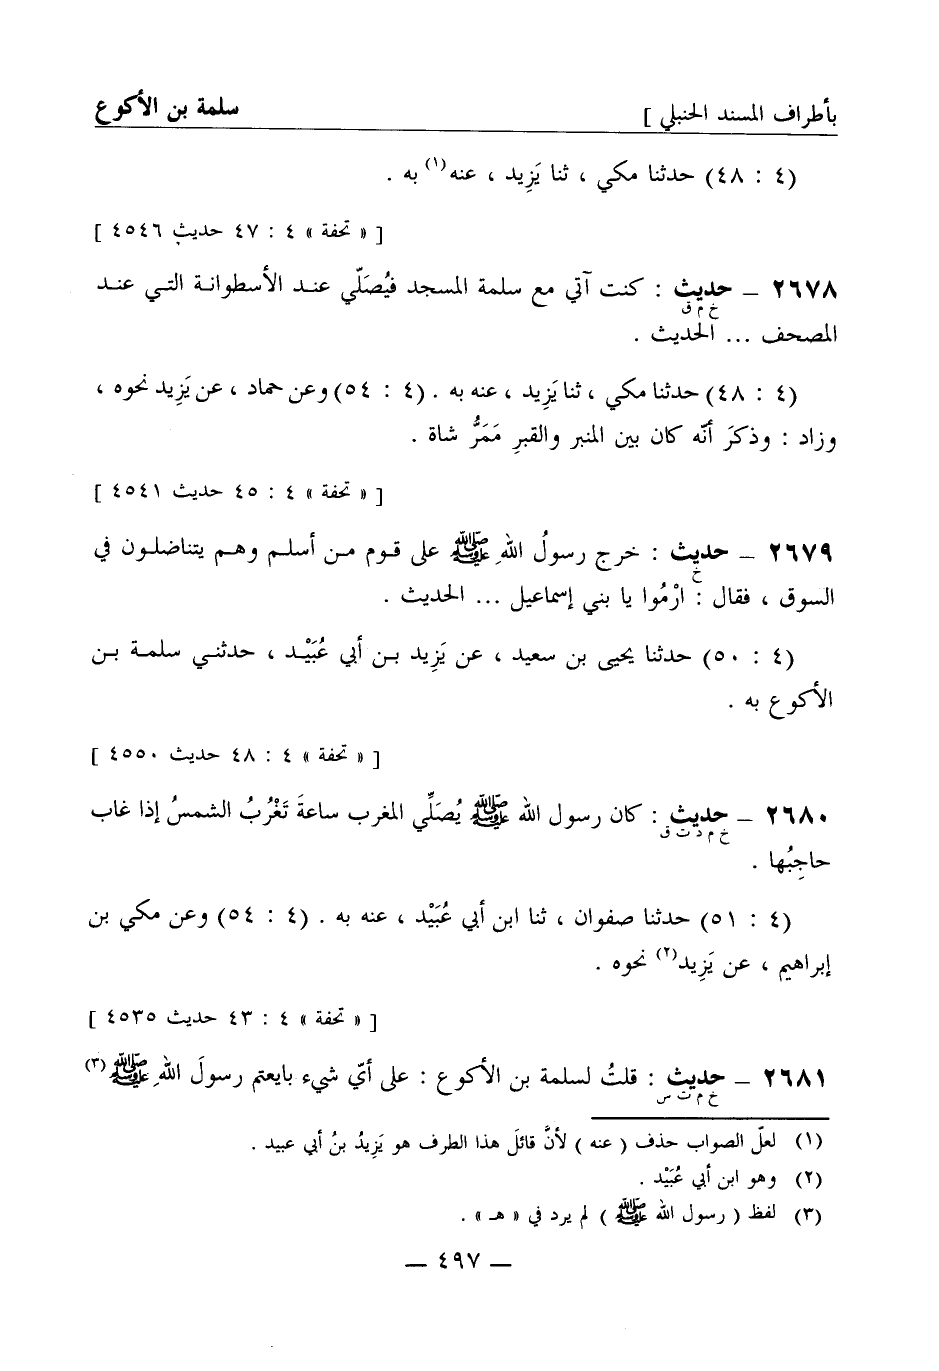 بأطراف المسند الحنبلي ] سلمة بن الأكوع
(٤ : ٤٨) حدثنا مكي ، ثنا يَزِيد ، عنه(١) به .
[ « تحفة » ٤ : ٤٧ حديث ٤٥٤٦ ]
٢٦٧٨ ـ حديث : كنت آتي مع سلمة المسجد فيُصَلّي عند الأسطوانة التي عند
خ م ق
المصحف ... الحديث .
(٤ : ٤٨) حدثنا مكي ، ثنا يَزِيد ، عنه به . (٤ : ٥٤) وعن حماد ، عن يَزِيد نحوه ،
وزاد : وذكرَ أنّه كان بين المنبر والقبرِ مَمَرُّ شاة .
[ « تحفة » ٤ : ٤٥ حديث ٤٥٤١ ]
٢٦٧٩ ـ حديث : خرج رسولُ اللهِ ﷺ على قوم من أسلم وهم يتناضلون في
خ
السوق ، فقال : ارْمُوا يا بني إسماعيل ... الحديث .
(٤ : ٥٠) حدثنا يحيى بن سعيد ، عن يَزِيد بن أبي عُبَيْد ، حدثني سلمة بن
الأكوع به .
[ « تحفة » ٤ : ٤٨ حديث ٤٥٥٠ ]
٢٦٨٠ ـ حديث : كان رسول الله ﷺ يُصَلِّي المغرب ساعةَ تَغْرُبُ الشمسُ إذا غاب
خ م د ت ق
حاجِبُها .
(٤ : ٥١) حدثنا صفوان ، ثنا ابن أبي عُبَيْد ، عنه به . (٤ : ٥٤) وعن مكي بن
إبراهيم ، عن يَزِيد(٢) نحوه .
[ « تحفة » ٤ : ٤٣ حديث ٤٥٣٥ ]
٢٦٨١ ـ حديث : قلتُ لسلمة بن الأكوع : على أيّ شيء بايعتم رسولَ اللهِ ﷺ(٣)
خ م ت س
(١) لعلّ الصواب حذف ( عنه ) لأنَّ قائلَ هذا الطرف هو يَزِيدُ بنُ أبي عبيد .
(٢) وهو ابن أبي عُبَيْد .
(٣) لفظ ( رسول الله ﷺ ) لم يرد في « هـ » .
ـ ٤٩٧ ـ